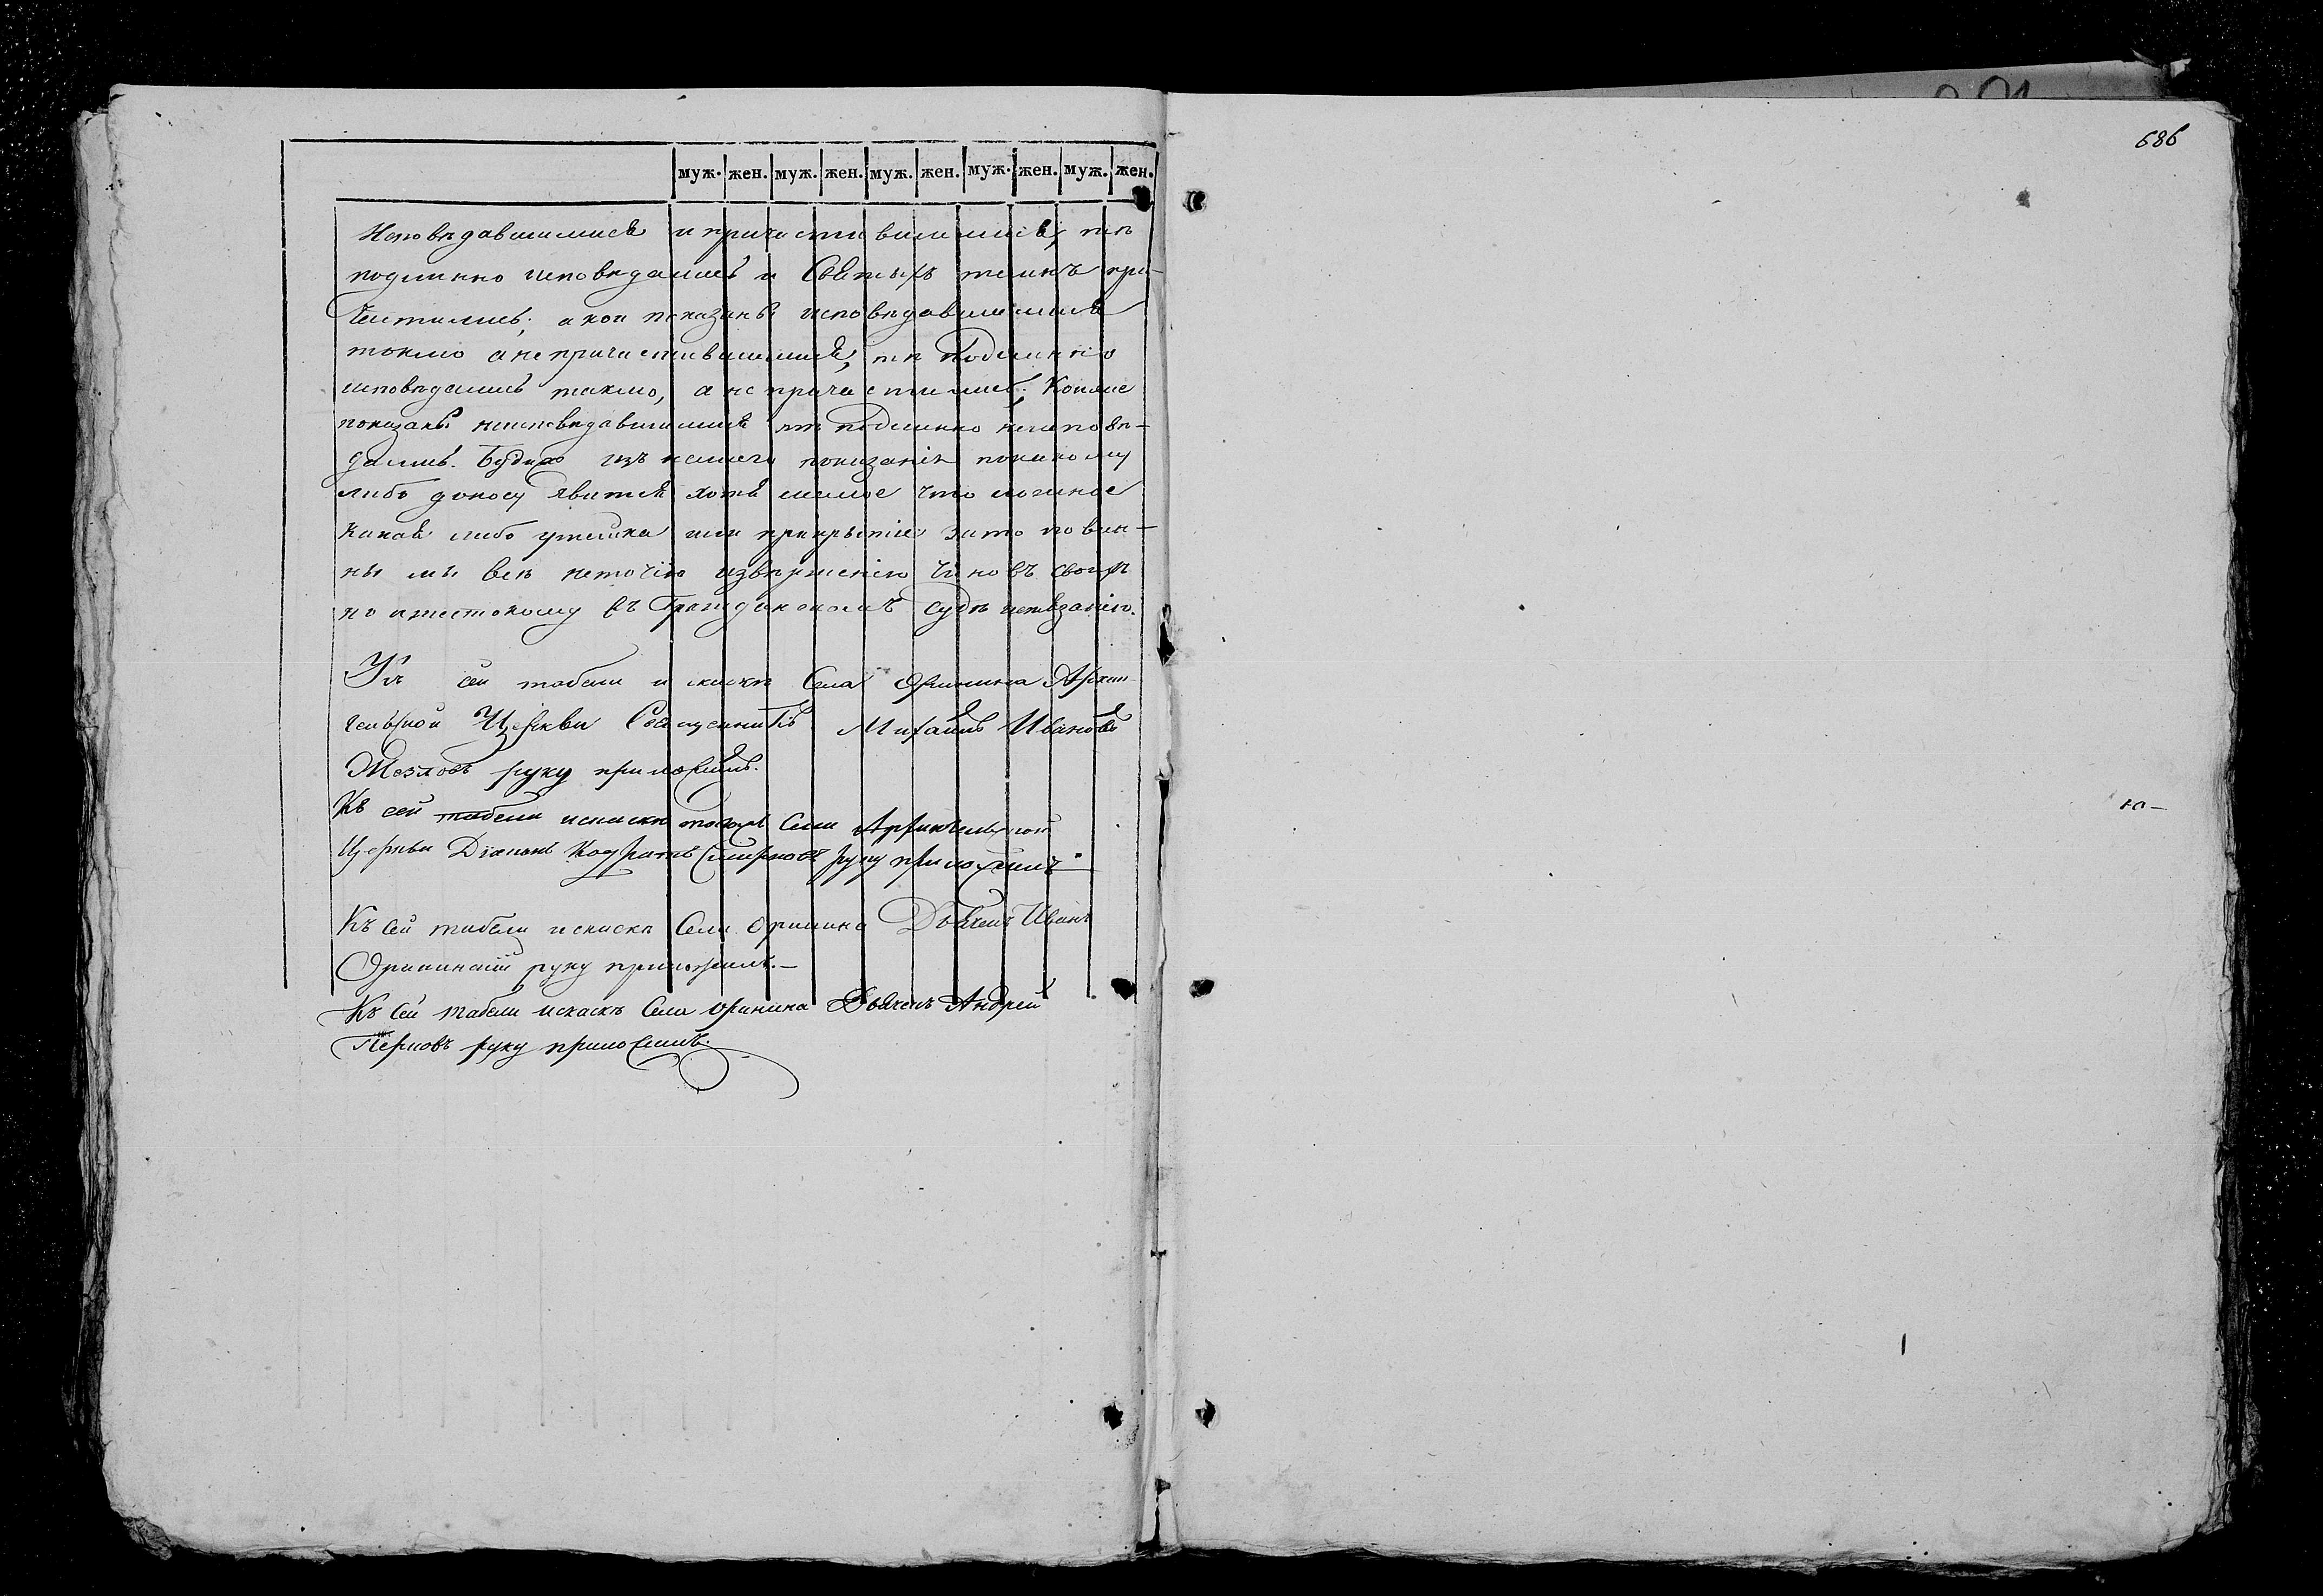 муж. жен. муж. жен. муж. жен. муж. жен. муж. жен.
686
Исповѣдавшимися и причастившимися, тѣ
подлинно исповѣдались и Святыхъ таинъ при-
частились; а кои показаны исповѣдавшимися
токмо а не причастившимися, тѣ подлинно
исповѣдались токмо, а не причастились; Кои же
показаны неисповѣдавшимися тѣ подлинно неисповѣ-
дались. Будеже изъ нашего показанія по какому
либо доносу явится хотя малое что ложное
какая либо утайка или прикрытіе зато повин-
ны мы всѣ неточію изверженію чиновъ своихъ
но и жестокому въ Гражданскомъ судѣ истязанію.
Къ сей табели и списку Села Оринина Архан
гельской Церкви Священникъ Михаилъ Ивановъ
руку приложилъ.
Къ сей табели и списку тогожъ Села Архангельской
Церкви Діаконъ Кодратъ Смирновъ руку приложилъ
Къ сей табели и списку Села Оринина Дьячекъ Иванъ
Орининскій руку приложилъ.—
Къ сей табели и списку Села Оринина Дьячекъ Андрей
руку приложилъ.
ю—